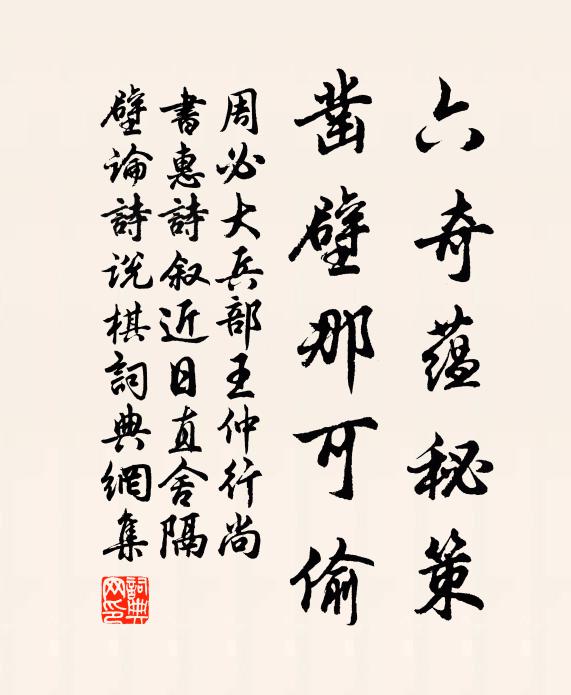 六奇蕴秘策
凿壁那可偷
周必大兵部王仲行尚
書惠詩叙近日直舍隔
壁論詩说棋詞典網集
詞典
网印